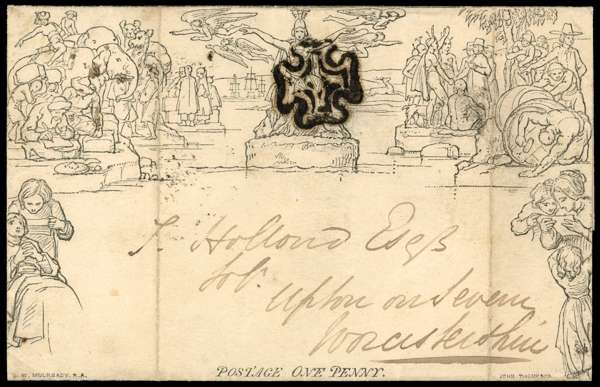 T. Holland Esqr
Solr
Upton on Severn
Worcestershire
POSTAGE ONE PENNY.
W. MULREADY, R.A.
JOHN THOMPSON